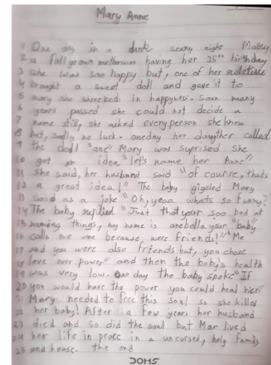 Mary Anne
1 One day in a dark scary night Mary
2 a full grown mother having her 25th birthday
3 she was soo happy but, one of her
4 brought a sweet doll and gave it to
5 mary she in happyness. soon many
6 years passed she could not decide a
7 name still, she asked every person she knew
8 but, sadly no luck. oneday her daughter called
9 the doll "ane" Mary was suprised she
10 got an idea "lets name her Anne"
11 she said, her husband said "of course, thats
12 a great idea!" The baby gigeled Mary
13 said as a joke "Oh, yeaa whats so funny?"
14 The baby replied "Just that your soo bad at
15 naming things, my name is anabella your baby
16 calls me ane because were friends!" "Me
17 and you were also friends but, you chose
18 love over power" and then the baby's health
19 was very low. One day the baby spoke "If
20 you would have the power you could heal her!"
21 Mary needed to free this soal so she killed
22 her baby! After a few years her husband
23 died and so did the soal but Mar lived
24 her life in peace in a uncursed, holy family
25 and house. the end
DOMS